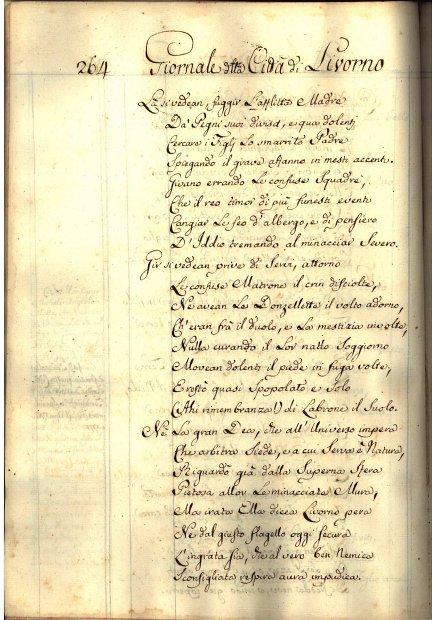 264 Giornale della Città di Livorno
Là si vedean fuggir l'afflitta Madre
Da' Pegni suoi divisa, e qua dolenti
Cercare i Figlj lo smarrito Padre
Spiegando il grave affanno in mesti accenti.
Givano errando le confuse Squadre,
Che il reo timor di più funesti eventi
Cangiar le feo d'albergo, e di pensiero
D'Iddio tremando al minacciar Severo.
Gir si vedean prive di Servi, attorno
Le confuse Matrone il crin disciolte,
Ne avean le Donzellette il volto adorno,
Ch'eran frà il duolo, e la mestizia involte,
Nulla curando il lor natto Soggiorno
Movean dolenti il piede in fuga volte,
E restò quasi Spopolato e Solo
(Ahi rimembranza!) di Labrone il Suolo.
Ne la gran Dea, che all'Universo impera
Che arbitra Siede, e a cui Serva è Natura,
Riguardò già dalla Superna Sfera
Pietosa allor le minacciate Mura,
Ma irata Ella dicea Livorno pera
Ne dal giusto flagello oggi Secura
L'ingrata sia, che al vero ben Nemica
Sconsigliata respira aura impudica.